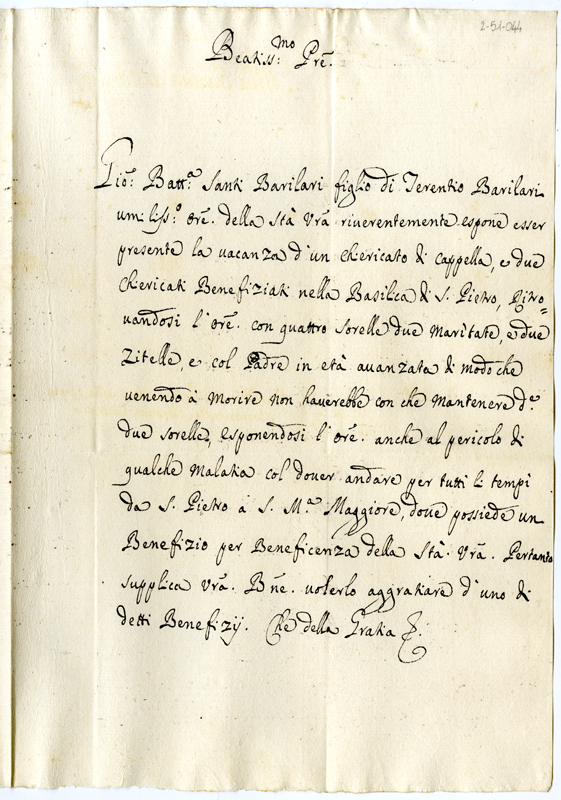 2-51-044
Beatiss:mo Prē.
Gio: Batt:a Santi Barilari figlio di Terentio Barilari
umiliss:o orē. della Stà Vrā riuerentemente espone esser
presente la vacanza d'un Chericato di Cappella, e due
Chericati Benefiziati nella Basilica di S. Pietro, Ritro=
uandosi l'orē. con quattro sorelle due maritate, e due
Zitelle, e col Padre in età auanzata di modo che
venendo à morire non hauerebbe con che mantenere d.e
due sorelle, esponendosi l'orē. anche al pericolo di
qualche malatia col douer andare per tutti li tempi
da S. Pietro a S. M.a Maggiore, doue possiede un
Benefizio per Beneficenza della Stà. Vrā. Pertanto
supplica Vrā. Bne. uolerlo aggratiare d'uno di
detti Benefizij. Che della Gratia